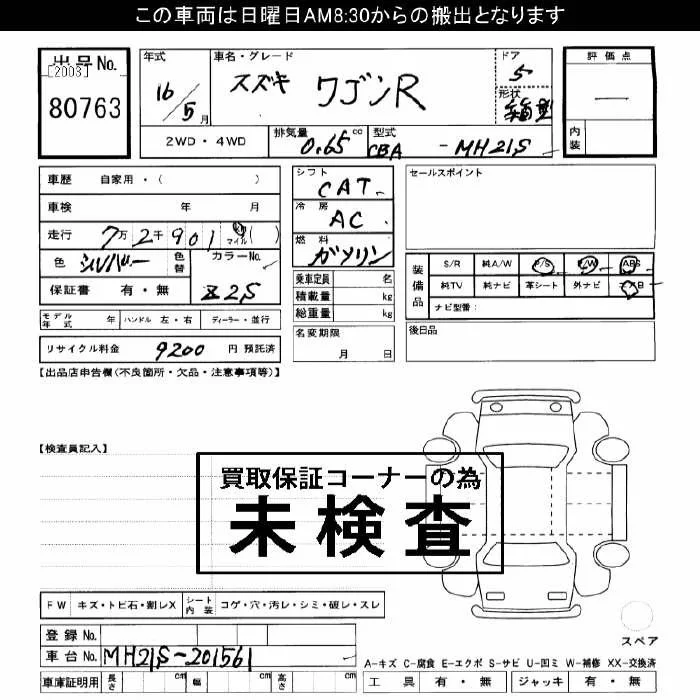 この車両は日曜日AM8:30からの搬出となります
出品No.
[2003]
80763
年式 16/5月
車名・グレード スズキ ワゴンR
ドア 5
形状 箱型
評価点
—
内装
2WD・4WD
排気量 0.65 cc
型式 CBA - MH21S
車歴 自家用・( )
車検 年 月
走行 7万2千901 km マイル( )
色 シルバー 色替 カラーNo. Z2S
保証書 有・無
モデル年式 年 ハンドル 左・右 ディーラー・並行
リサイクル料金 9200 円 預託済
シフト CAT
冷房 AC
燃料 ガソリン
乗車定員 名
積載量 kg
総重量 kg
名変期限
月 日
セールスポイント
装備品
S/R 純A/W P/S P/W ABS
純TV 純ナビ 革シート 外ナビ
ナビ型番:
後日品
【出品店申告欄(不良箇所・欠品・注意事項等)】
【検査員記入】
買取保証コーナーの為
未検査
FW キズ・トビ石・割レX シート内装 コゲ・穴・汚レ・シミ・破レ・スレ
登録No.
車台No. MH21S-201561
車庫証明用 長さ cm 幅 cm 高さ cm
スペア
A-キズ C-腐食 E-エクボ S-サビ U-凹ミ W-補修 XX-交換済
工具 有・無 ジャッキ 有・無